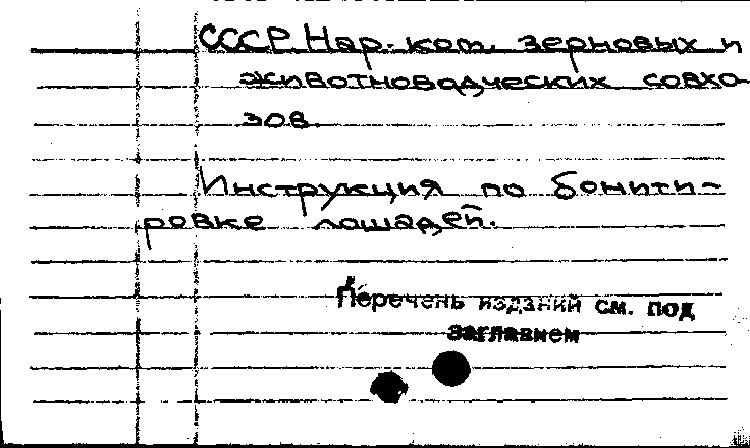 СССР. Нар. ком. зерновых и
животноводческих совхо-
зов.
Инструкция по бонити-
ровке лошадей.
Перечень изданий см. под
заглавием